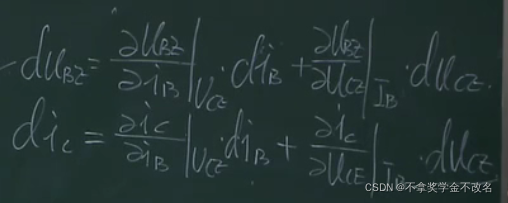 du_{BZ} = \frac{∂u_{BZ}}{∂i_B}|_{U_{CE}} · di_B + \frac{∂u_{BZ}}{∂u_{CE}}|_{I_B} · du_{CE}.
di_C = \frac{∂i_C}{∂i_B}|_{U_{CE}} · di_B + \frac{∂i_C}{∂u_{CE}}|_{I_B} · du_{CE}
CSDN @不拿奖学金不改名